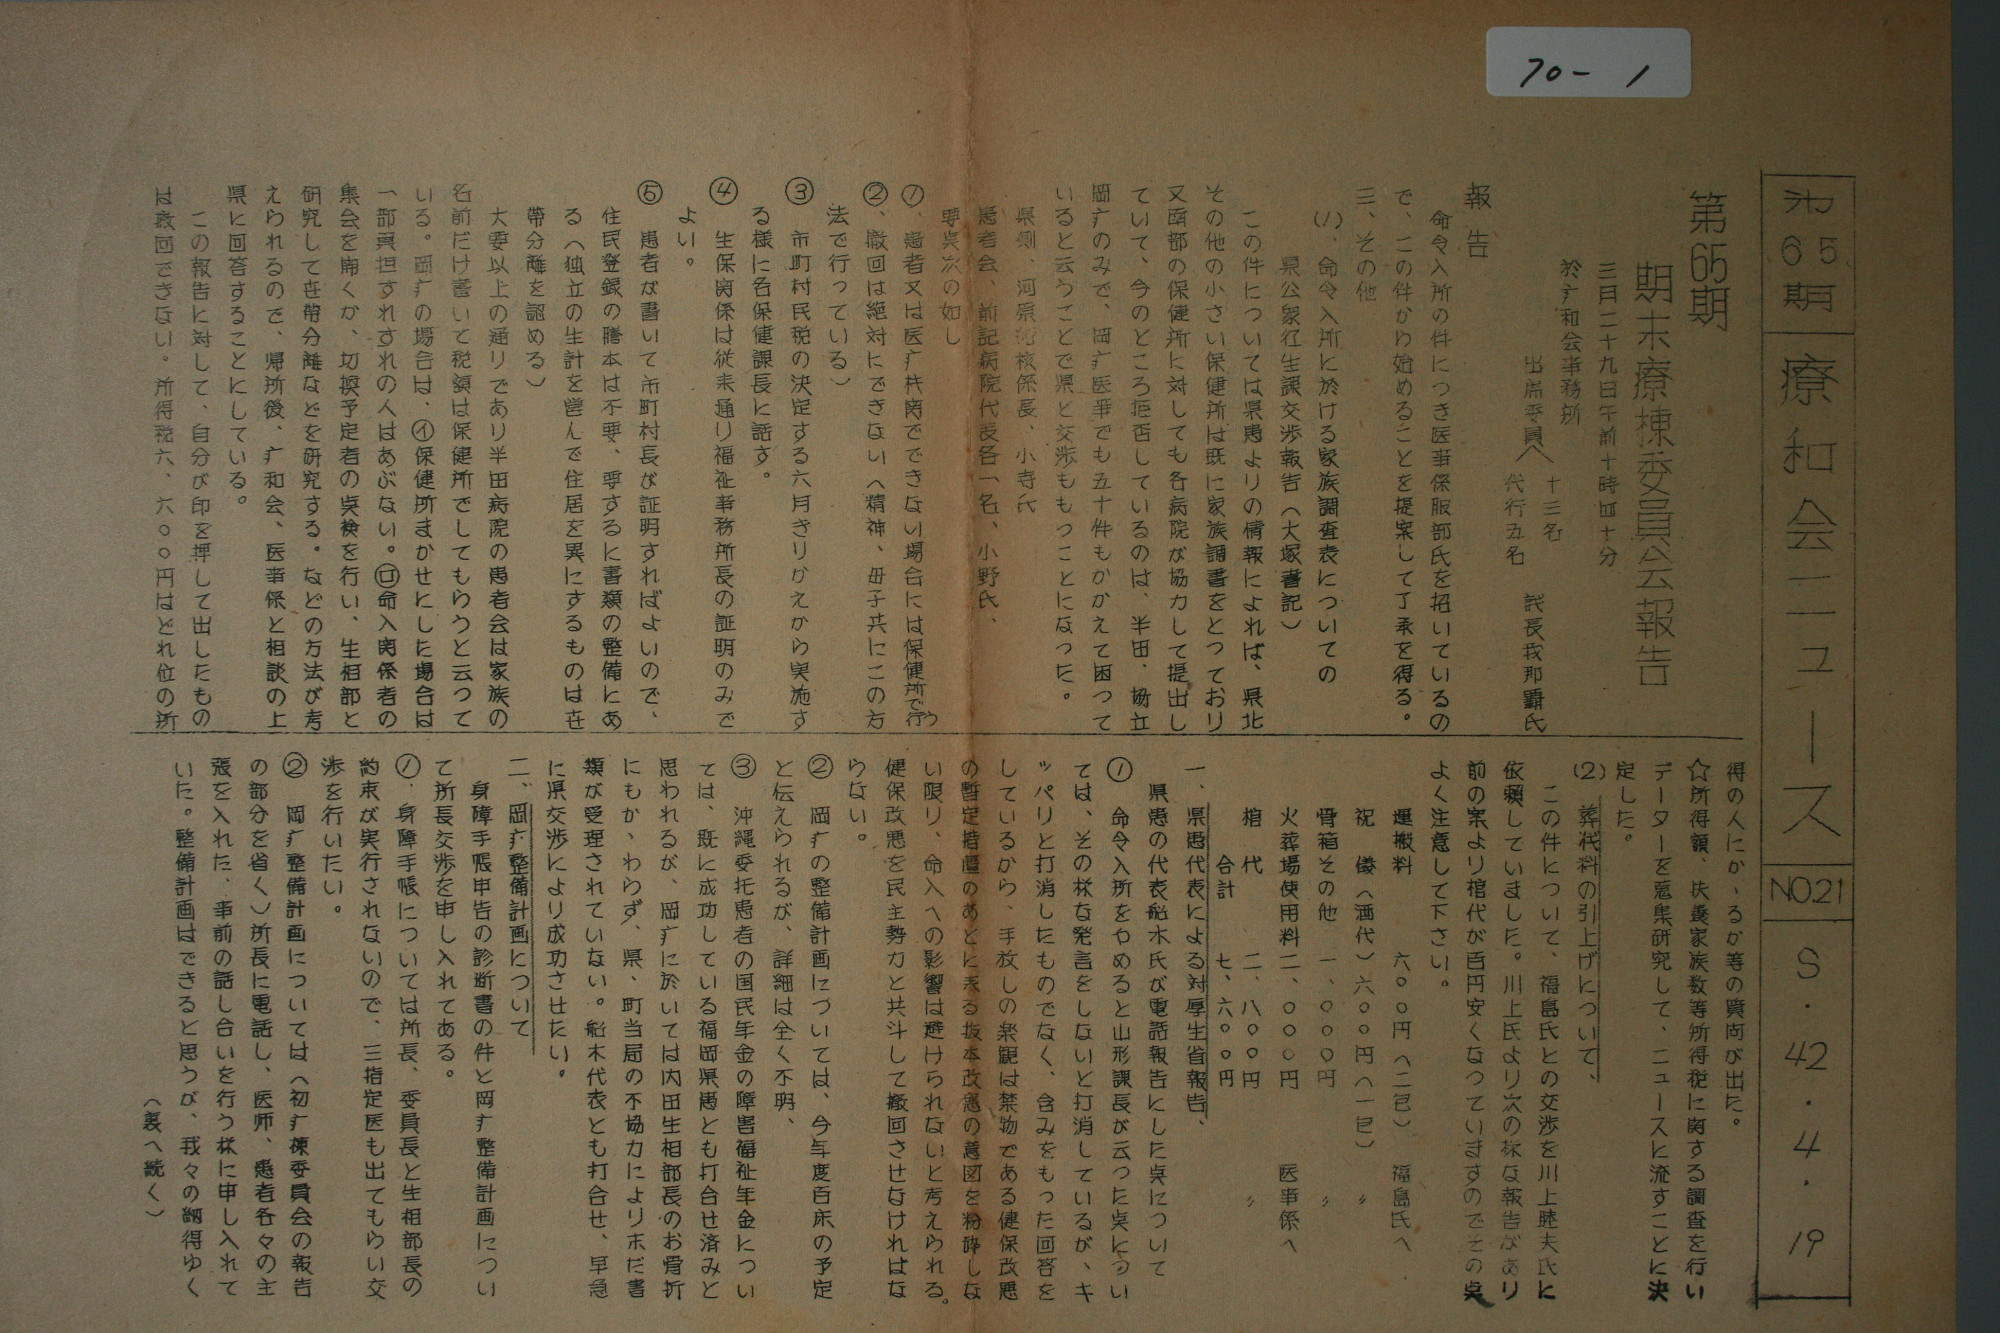 70-1
第65期
療和会ニュース
NO.21
S.42.4.19
第65期
期末療棟委員会報告
三月二十九日午前十時四十分
於疒和会事務所
出席委員へ
十三名
代行五名
議長我那覇氏
報告
命令入所の件につき医事係服部氏を招いているの
で、この件から始めることを提案して了承を得る。
三、その他
(1)、命令入所に於ける家族調査表についての
県公衆衛生課交渉報告(大塚書記)
この件については県患よりの情報によれば、県北
その他の小さい保健所は既に家族調書をとっており
又南部の保健所に対しても各病院が協力して提出し
ていて、今のところ拒否しているのは、半田、協立
岡疒のみで、岡疒医事でも五十件もかかえて困って
いると云うことで県と交渉をもつことになった。
県側、河原結核係長、小寺氏
患者会、前記病院代表各一名、小野氏、
要点次の如し
①、患者又は医疒机関でできない場合には保健所で行う
②、撤回は絶対にできない(精神、母子共にこの方
法で行っている)
③ 市町村民税の決定する六月きりかえから実施す
る様に各保健課長に話す。
④ 生保関係は従来通り福祉事務所長の証明のみで
よい。
⑤ 患者が書いて市町村長が証明すればよいので、
住民登録の謄本は不要、要するに書類の整備にあ
る(独立の生計を営んで住居を異にするものは世
帯分離を認める)
大委以上の通りであり半田病院の患者会は家族の
名前だけ書いて税額は保健所でしてもらうと云って
いる。岡疒の場合は、㋑保健所まかせにした場合は
一部負担すれすれの人はあぶない。㋺命入関係者の
集会を開くか、切換予定者の点検を行い、生相部と
研究して世帯分離などを研究する。などの方法が考
えられるので、帰所後、疒和会、医事係と相談の上
県に回答することにしている。
この報告に対して、自分が印を押して出したもの
は撤回できない。所得税六、六〇〇円はどれ位の所
得の人にかゝるか等の質問が出た。
☆所得額、扶養家族数等所得税に関する調査を行い
データーを蒐集研究して、ニュースに流すことに決
定した。
(2)葬代料の引上げについて、
この件について、福島氏との交渉を川上睦夫氏に
依頼していました。川上氏より次の様な報告があり
前の案より棺代が百円安くなっていますのでその点
よく注意して下さい。
運搬料 六〇〇円(二包) 福島氏へ
祝儀(酒代)六〇〇円(一包) 〃
骨箱その他 一、〇〇〇円 〃
火葬場使用料 二、〇〇〇円 医事係へ
棺代 二、八〇〇円 〃
合計 七、六〇〇円
一、県患代表による対厚生省報告、
県患の代表船木氏が電話報告にした点について
① 命令入所をやめると山形課長が云った点につい
ては、その様な発言をしないと打消しているが、キ
ッパリと打消したものでなく、含みをもった回答を
しているから、手放しの楽観は禁物である健保改悪
の暫定措置のあとに来る抜本改悪の意図を粉砕しな
い限り、命入への影響は避けられないと考えられる。
健保改悪を民主勢力と共斗して撤回させなければな
らない。
② 岡疒の整備計画については、今年度百床の予定
と伝えられるが、詳細は全く不明、
③ 沖縄委托患者の国民年金の障害福祉年金につい
ては、既に成功している福岡県患とも打合せ済みと
思われるが、岡疒に於いては内田生相部長のお骨折
にもかゝわらず、県、町当局の不協力により未だ書
類が受理されていない。船木代表とも打合せ、早急
に県交渉により成功させたい。
二、岡疒整備計画について
身障手帳申告の診断書の件と岡疒整備計画につい
て所長交渉を申し入れてある。
①、身障手帳については所長、委員長と生相部長の
約束が実行されないので、三指定医も出てもらい交
渉を行いたい。
② 岡疒整備計画については(初疒棟委員会の報告
の部分を省く)所長に電話し、医師、患者各々の主
張を入れた、事前の話し合いを行う様に申し入れて
いた。整備計画はできると思うが、我々の納得ゆく
(裏へ続く)